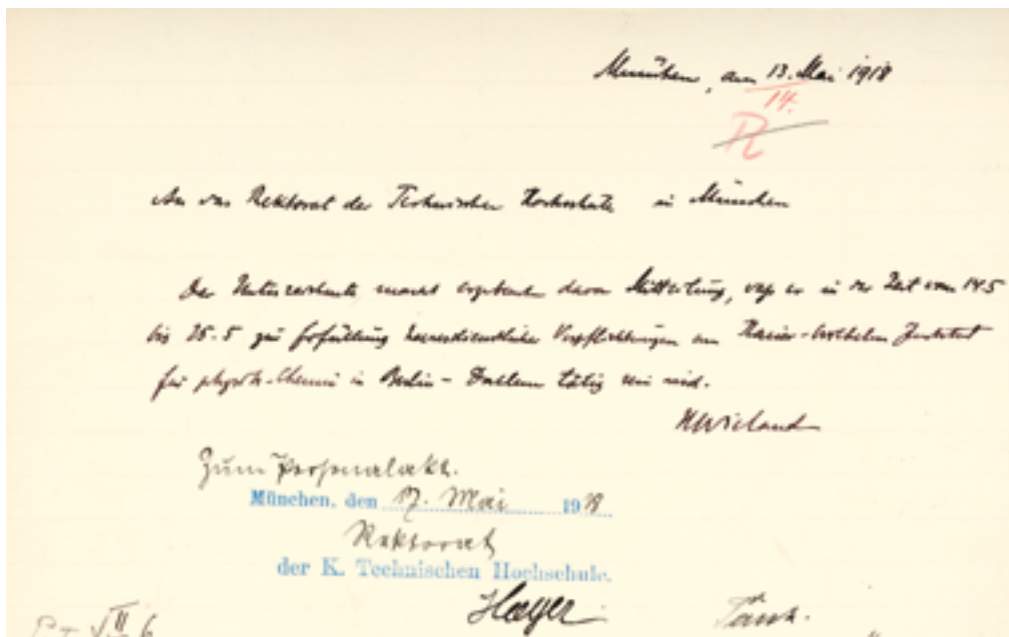 München, am 13. Mai 1918
14.
R
An das Rektorat der Technischen Hochschule in München
Der Unterzeichnete macht ergebenst davon Mitteilung, dass er in der Zeit vom 14.5
bis 25.5 zur Erfüllung heeresdienstlicher Verpflichtungen am Kaiser-Wilhelm Institut
für physik. Chemie in Berlin-Dahlem tätig sein wird.
HWieland
Zum Personalakt.
München, den 17. Mai 1918.
Rektorat
der K. Technischen Hochschule.